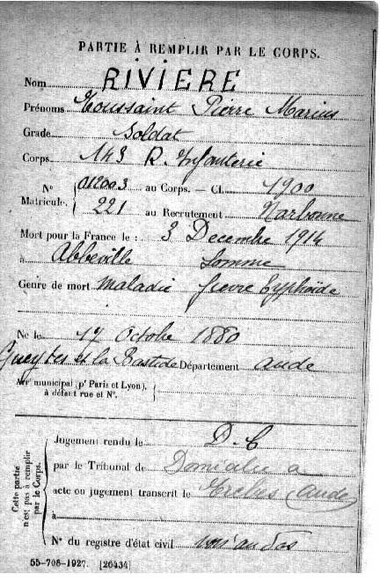 PARTIE À REMPLIR PAR LE CORPS.
Nom RIVIERE
Prénoms Toussaint Pierre Marius
Grade Soldat
Corps 143 R. Infanterie
N° 012003 au Corps. — Cl. 1900
Matricule. 221 au Recrutement Narbonne
Mort pour la France le : 3 Decembre 1914
à Abbeville Somme
Genre de mort Maladie fievre Typhoïde
Né le 17 Octobre 1880
Gueytes et la Bastide Département Aude
Arr' municipal (p' Paris et Lyon),
à défaut rue et N°.
Cette partie
n'est pas à remplir
par le Corps.
Jugement rendu le D. C
par le Tribunal de Domicilié à
acte ou jugement transcrit le Trebes (Aude)
à
N° du registre d'état civil
55-708-1927. [26434]